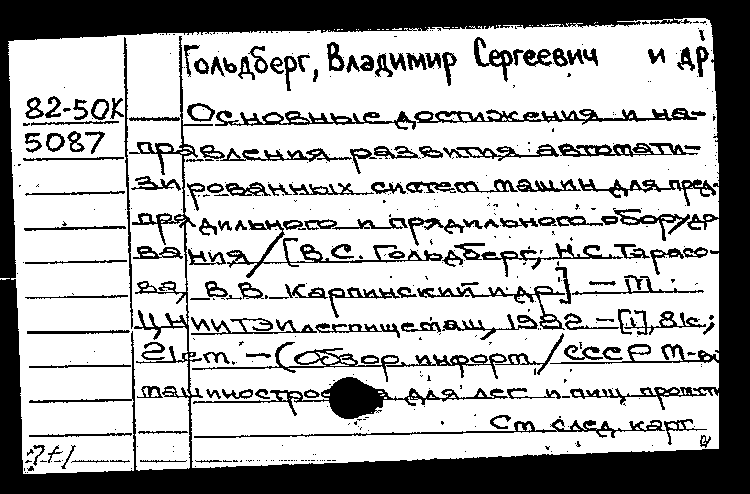 Гольдберг, Владимир Сергеевич и др.
82-50К Основные достижения и на-
5087 правления развития автомати-
зированных систем машин для пред-
прядильного и прядильного оборудо
вания / [В.С. Гольдберг, Н.С. Тарасо-
ва, В.В. Карпинский и др.] — М.:
ЦНИИТЭИлегпищемаш, 1982 – [1], 81 с.;
21 см. – (Обзор. информ. / СССР М-во
машиностроения для лег. и пищ. пром-сти
См. след. карт.